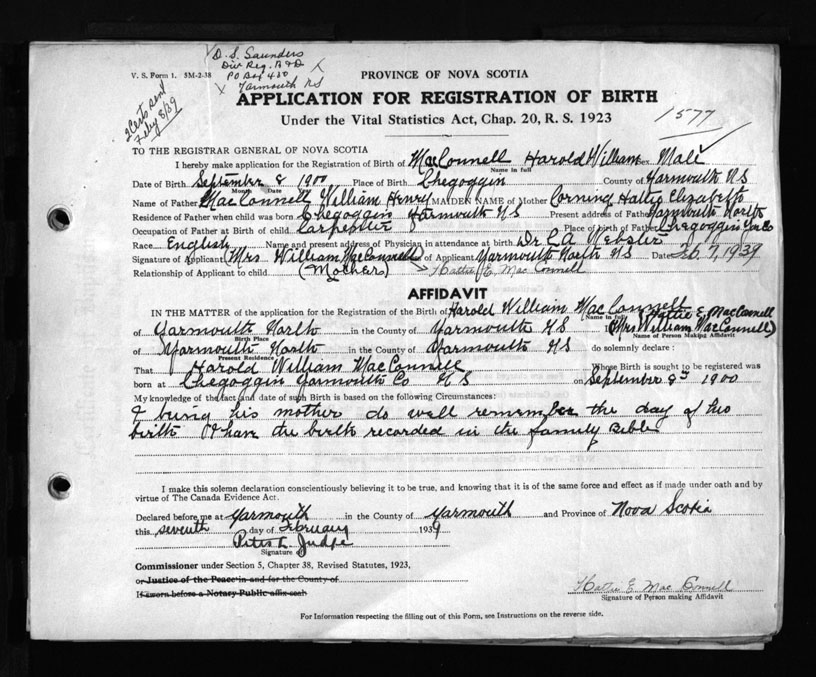 D. S. Saunders
Div Reg. B & D
PO Box 400
Yarmouth NS
V. S. Form 1. 5M-2-38
2 Certs sent
Feby 8/39
PROVINCE OF NOVA SCOTIA
APPLICATION FOR REGISTRATION OF BIRTH
Under the Vital Statistics Act, Chap. 20, R. S. 1923
1577
TO THE REGISTRAR GENERAL OF NOVA SCOTIA
I hereby make application for the Registration of Birth of MacConnell Harold William Sex Male
Name in full
Date of Birth September 8 1900 Place of Birth Chegoggin County of Yarmouth NS
Month Date
Name of Father MacConnell William Henry MAIDEN NAME of Mother Corning Hattie Elizabeth
Residence of Father when child was born Chegoggin Yarmouth NS Present address of Father Yarmouth North
Occupation of Father at Birth of child Carpenter Place of Chegoggin Yar Co
Race English Name and present address of Physician in attendance at birth Dr C A Webster
Signature of Applicant Mrs William MacConnell of Applicant Yarmouth North NS Date Feb. 7, 1939
Relationship of Applicant to child (Mother) Hattie E. MacConnell
AFFIDAVIT
IN THE MATTER of the application for the Registration of the Birth of Harold William MacConnell
(Name in full) Hattie E. MacConnell
of Yarmouth North in the County of Yarmouth NS (Mrs William MacConnell)
Birth Place Name of Person Making Affidavit
of Yarmouth North in the County of Yarmouth NS do solemnly declare:
Present Residence
That Harold William MacConnell Whose Birth is sought to be registered was
born at Chegoggin Yarmouth Co NS on September 8th 1900
My knowledge of the fact and date of such Birth is based on the following Circumstances:
I being his mother do well remember the day of his
birth I have the birth recorded in the family Bible
I make this solemn declaration conscientiously believing it to be true, and knowing that it is of the same force and effect as if made under oath and by
virtue of The Canada Evidence Act.
Declared before me at Yarmouth in the County of Yarmouth and Province of Nova Scotia
this seventh day of February 1939
Peter L Judge
Signature of
Commissioner under Section 5, Chapter 38, Revised Statutes, 1923,
or Justice of the Peace in and for the County of
If sworn before a Notary Public affix seal
Hattie E MacConnell
Signature of Person making Affidavit
For Information respecting the filling out of this Form, see Instructions on the reverse side.